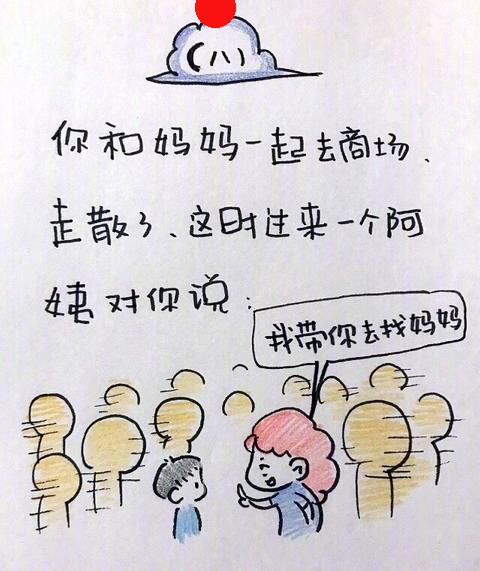 (八)
你和妈妈一起去商场、
走散了、这时过来一个阿
姨对你说:
我带你去找妈妈